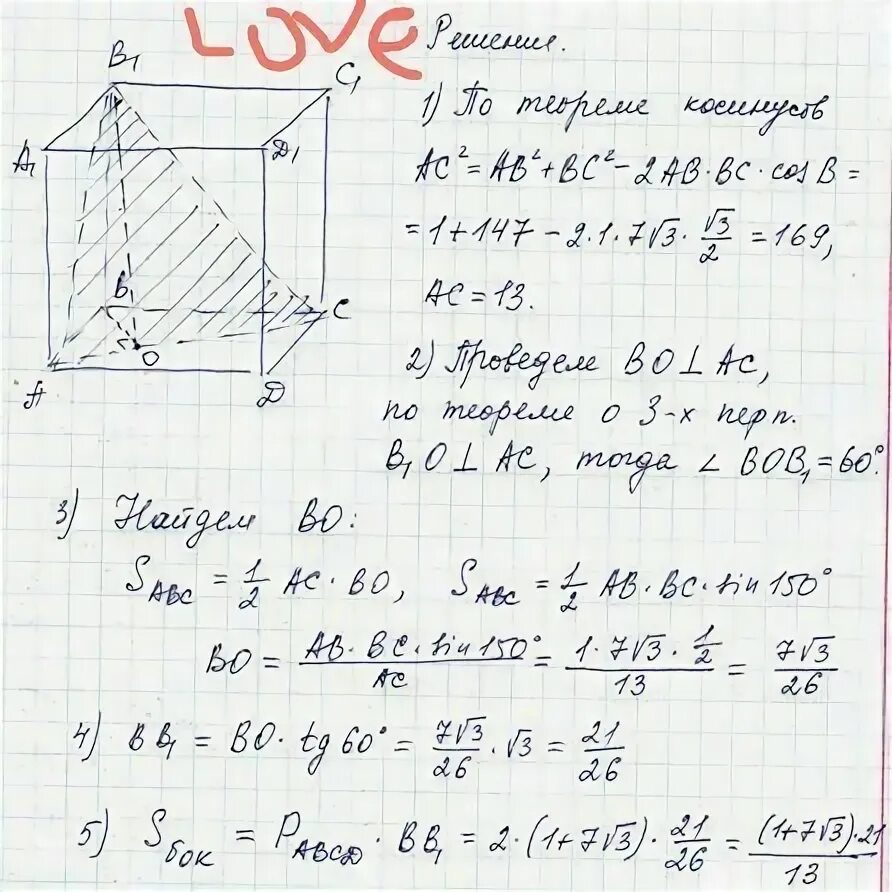 LOVE
Решение.
B₁
C₁
A₁
D₁
B
C
O
A
D
1) По теореме косинусов
AC² = AB² + BC² - 2AB·BC·cos B =
= 1 + 147 - 2·1·7√3·√3/2 = 169,
AC = 13.
2) Проведем BO ⊥ AC,
по теореме о 3-х перп.
B₁O ⊥ AC, тогда ∠ BOB₁ = 60°.
3) Найдем BO:
S_ABC = 1/2 AC·BO, S_ABC = 1/2 AB·BC·sin 150°
BO = AB·BC·sin 150°/AC = 1·7√3·1/2/13 = 7√3/26
4) BB₁ = BO·tg 60° = 7√3/26·√3 = 21/26
5) S_бок = P_ABCD·BB₁ = 2·(1+7√3)·21/26 = (1+7√3)·21/13